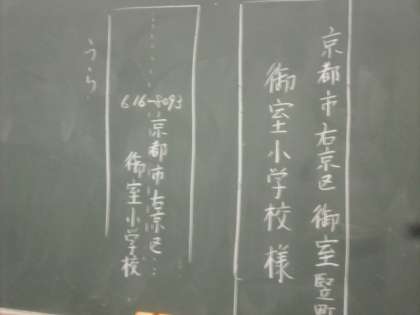 京都市右京区御室竪町
御室小学校様
616-8093
京都市右京区:
御室小学校
うら